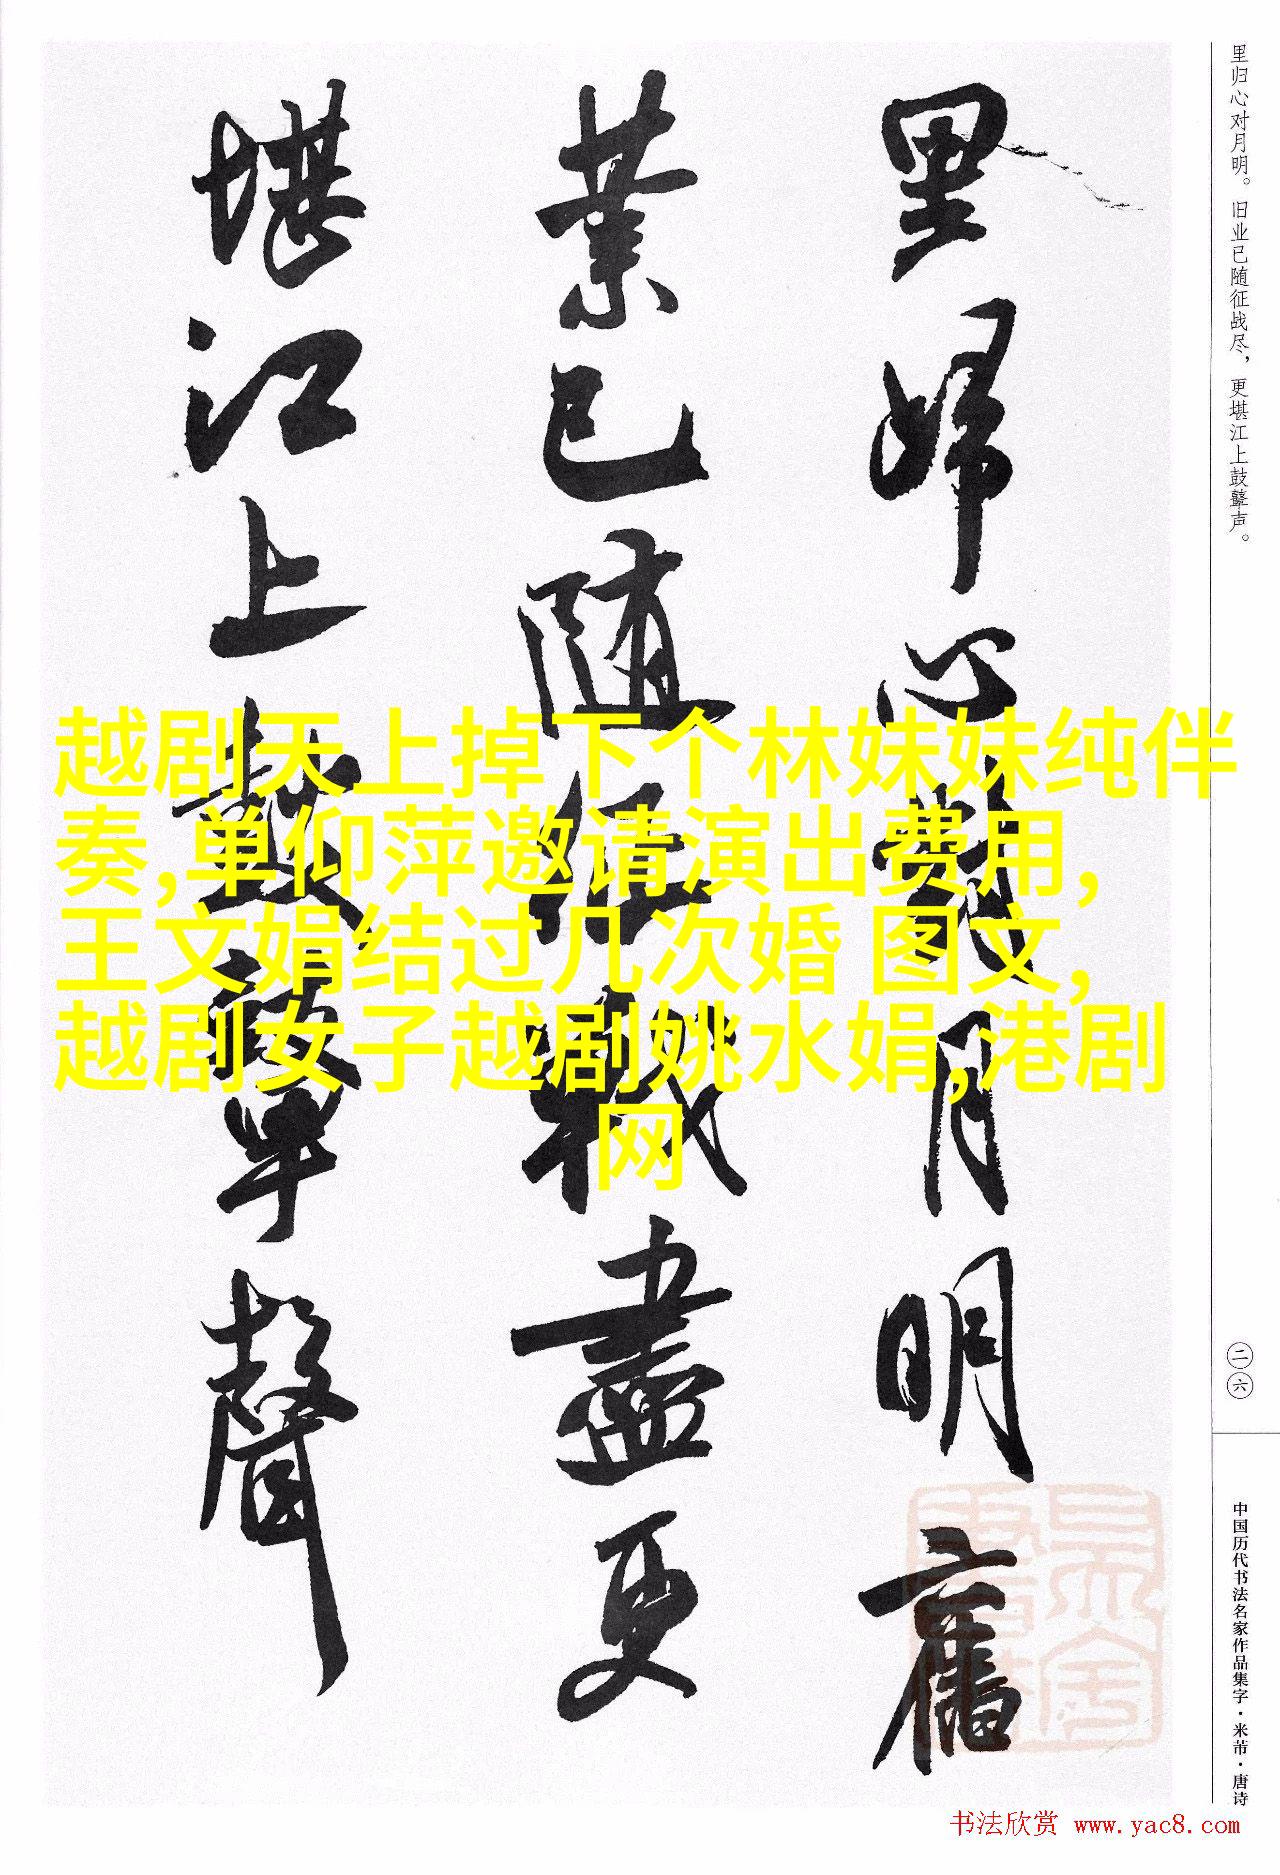 里归心对月明。旧业已随征战尽，更堪江上鼓鼙声。
里歸心對月明舊
業已随征戰盡更
堪江上鼓鼙聲
越剧天上掉下个林妹妹纯伴
奏,单仰萍邀请演出费用,
王文娟结过几次婚 图文,
越剧女子越剧姚水娟,港剧
网
二六
中国历代书法名家作品集字·米芾·唐诗
书法欣赏 www.yac8.com